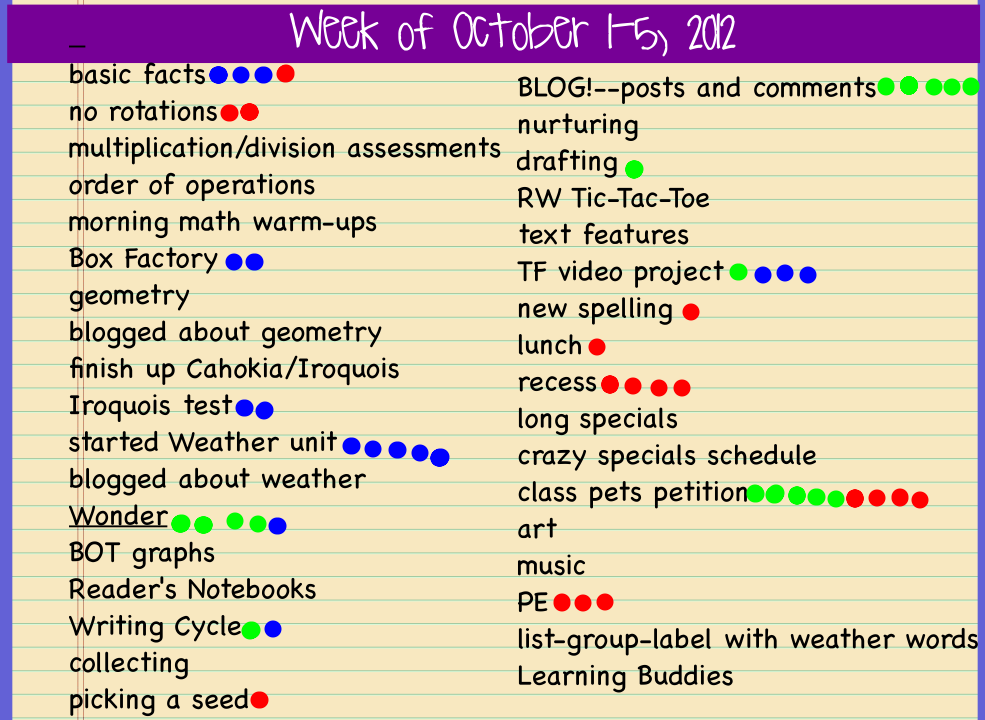 Week of October 1-5, 2012
basic facts
no rotations
multiplication/division assessments
order of operations
morning math warm-ups
Box Factory
geometry
blogged about geometry
finish up Cahokia/Iroquois
Iroquois test
started Weather unit
blogged about weather
Wonder
BOT graphs
Reader's Notebooks
Writing Cycle
collecting
picking a seed
BLOG!--posts and comments
nurturing
drafting
RW Tic-Tac-Toe
text features
TF video project
new spelling
lunch
recess
long specials
crazy specials schedule
class pets petition
art
music
PE
list-group-label with weather words
Learning Buddies